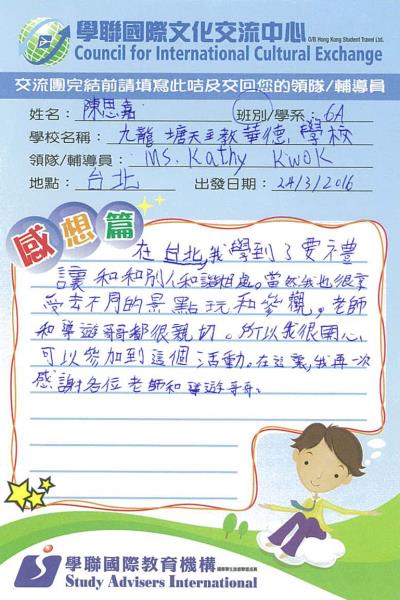 學聯國際文化交流中心 O/B Hong Kong Student Travel Ltd.
Council for International Cultural Exchange
交流團完結前請填寫此咭及交回您的領隊/輔導員
姓名：陳思嘉 班別/學系：6A
學校名稱：九龍塘天主教華德學校
領隊/輔導員：Ms. Kathy Kwok
地點：台北 出發日期：24/3/2016
感想篇
在台北,我學到了要禮
讓和和別人和諧相處。當然我也很享
受去不同的景點玩和參觀。老師
和導遊哥哥都很親切。所以我很開心,
可以參加到這個活動。在這裏,我再一次
感謝各位老師和導遊哥哥。
學聯國際教育機構
Study Advisers International